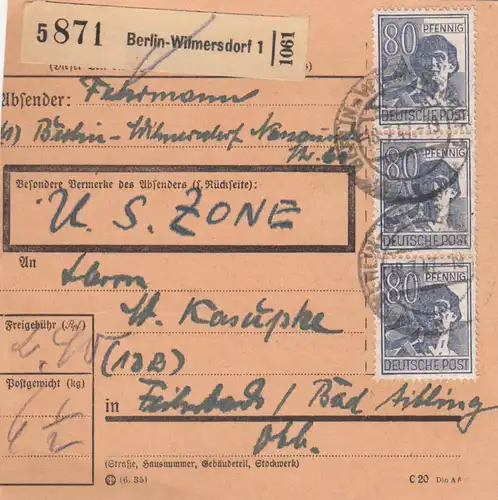 5 871 Berlin-Wilmersdorf 1 1061
80 PFENNIG
DEUTSCHE POST
80 PFENNIG
DEUTSCHE POST
80 PFENNIG
DEUTSCHE POST
Absender: Fuhrmann
(1) Berlin-Wilmersdorf
Besondere Vermerke des Absenders (s. Rückseite):
U. S. ZONE
An
Herrn
W. Kasupke
(13B)
Freigebühr (Rpf)
2,40
Postgewicht (kg)
6 1/2
in Feilnbach / Bad Aibling
Obb.
(Straße, Hausnummer, Gebäudeteil, Stockwerk)
(6. 35)
C 20 Din A 6